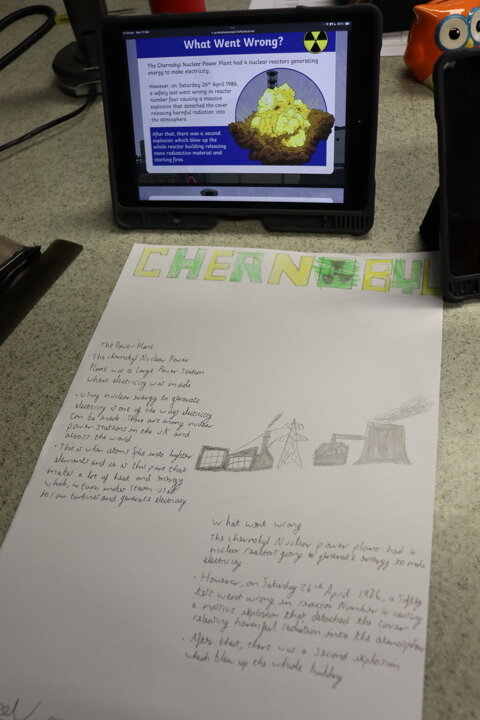 What Went Wrong?
The Chernobyl Nuclear Power Plant had 4 nuclear reactors generating
energy to make electricity.
However, on Saturday 26th April 1986,
a safety test went wrong in reactor
number four causing a massive
explosion that detached the cover
releasing harmful radiation into
the atmosphere.
After that, there was a second
explosion which blew up the
whole reactor building releasing
more radioactive material and
starting fires.
CHERNOBYL
The Power Plant
• The chernobyl Nuclear Power
Plant was a large Power Station
where electricity was made
• Using nuclear energy to generate
electricity is one of the ways electricity
can be made. There are many nuclear
power stations in the UK and
across the world
• This is when atoms split into lighter
elements and it is this part that
makes a lot of heat and energy
which in turn makes steam used
to turn turbines and generate electricity
What went wrong
The chernobyl Nuclear power plant had 4
nuclear reactors to generate energy to make
electricity
• However, on Saturday 26th April 1986, a Safety
test went wrong in reactor Number 4 causing
a massive explosion that detached the cover
releasing harmful radiation into the atmosphere
• After that, there was a second explosion
which blew up the whole building